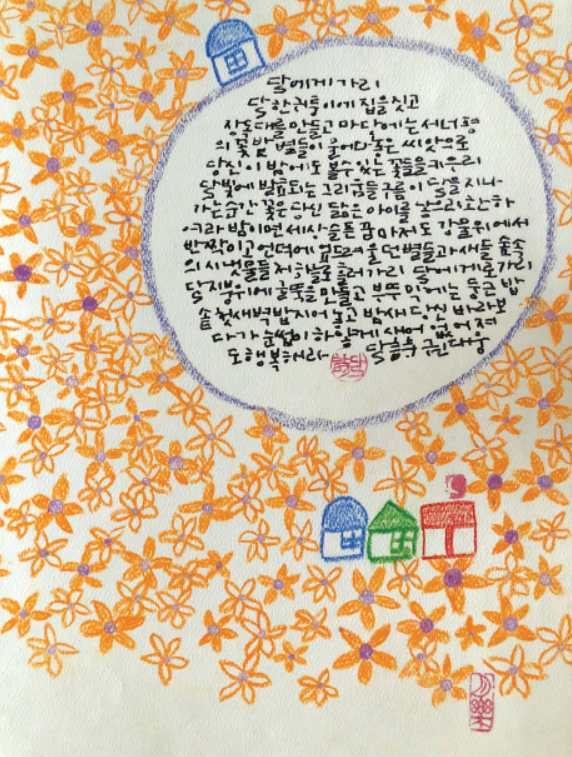 달에게 가리
달 한 귀퉁이에 집을 짓고
장독대를 만들고 마당에는 서너 평
의 꽃밭 별들이 물어다 놓은 씨앗으로
당신이 밤에도 볼 수 있는 꽃들을 키우리
달빛에 발효되는 그리움들 구름이 달을 지나
가는 순간 꽃은 당신 닮은 아이를 낳으리 초산하
여라 밤이면 세상 슬픈 꿈마저도 강물 위에서
반짝이고 언덕에 엎드려 울던 별들과 새들 숲속
의 시냇물들 저 하늘로 흘러가리 달에게로 가리
달 지붕 위에 굴뚝을 만들고 부뚜막에는 둥근 밥
솥 첫새벽 밥 지어 놓고 밤새 당신 바라보
다가 눈썹이 하얗게 새어 없어져
도 행복해라 달